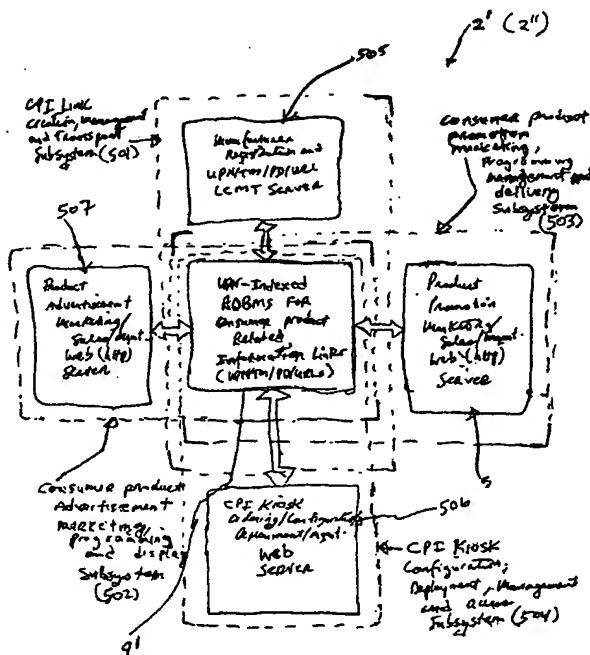 2' (2")
505
CPI Link
Creation, Management
and Transport
Subsystem (501)
Manufacturer
Registration and
UPN/TM/PD/URL
LCMT SERVER
Consumer product
promotion
marketing,
Programming
management and
delivery
Subsystem
(503)
507
Product
Advertisement
Marketing/
Sales/Mgmt.
Web (http)
Server
UPN-Indexed
RDBMS FOR
Consumer product
Related
Information Links
(UPN/TM/PD/URLs)
Product
Promotion
Marketing/
Sales/Mgmt.
Web (http)
Server
Consumer product
Advertisement
marketing,
programming
and display
Subsystem
(502)
CPI Kiosk
Ordering/Configuration
Deployment/Mgmt.
Web
Server
506
CPI Kiosk
Configuration,
Deployment, Management
and Access
Subsystem (504)
9'